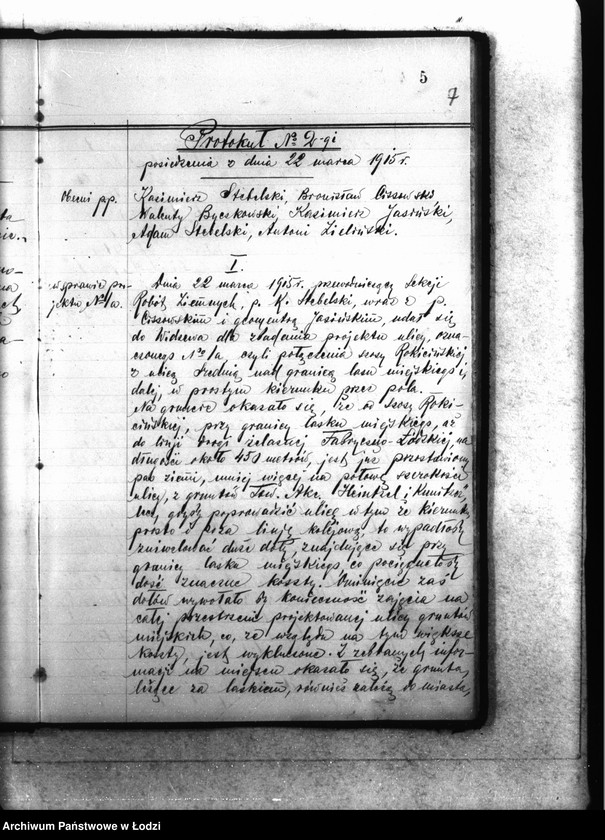 5
7
Protokuł № 2-gi
posiedzenia z dnia 22 marca 1915 r.
Obecni pp.
Kazimierz Stebelski, Bronisław Cissowski
Walenty Byczkowski, Kazimierz Jasiński,
Adam Stebelski, Antoni Zieliński.
I.
w sprawie pro-
jektu № 1a.
Dnia 22 marca 1915 r. przewodniczący Sekcji
Robót Ziemnych, p. K. Stebelski, wraz z p.
Cissowskim i geometrą Jasińskim, udał się
do Widzewa dla zbadania projektu ulicy, ozna-
czonego № 1a, czyli połączenia szosy Rokicińskiej
z ulicą Średnią nad granicą lasu miejskiego i
dalej, w prostym kierunku przez pola.
Na gruncie okazało się, że od szosy Roki-
cińskiej, przy granicy lasku miejskiego, aż
do linji drogi żelaznej Fabryczno-Łódzkiej, na
długości około 450 metrów, jest już pozostawiony
pas ziemi, mniej więcej na połowę szerokości
ulicy, z gruntów Tow. Akc. Heinzel i Kunitzer,
lecz, gdyby poprowadzić ulicę w tym że kierunku
prosto i poza linję kolejową, to wypadłoby
zniwelować duże doły, znajdujące się przy
granicy lasku miejskiego, co pociągnęłoby
dość znaczne koszty. Ominięcie zaś
dołów wywołało by konieczność zajęcia na
całej przestrzeni projektowanej ulicy gruntów
miejskich, co, ze względu na tym większe
koszty, jest wykluczone. Z zebranych infor-
macji na miejscu okazało się, że grunta,
leżące za laskiem, również należą do miasta,
Archiwum Państwowe w Łodzi